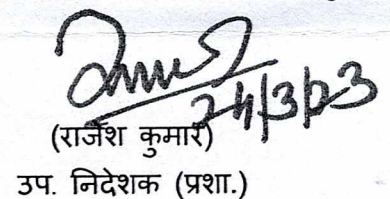 24/3/23
(राजेश कुमार)
उप. निदेशक (प्रशा.)